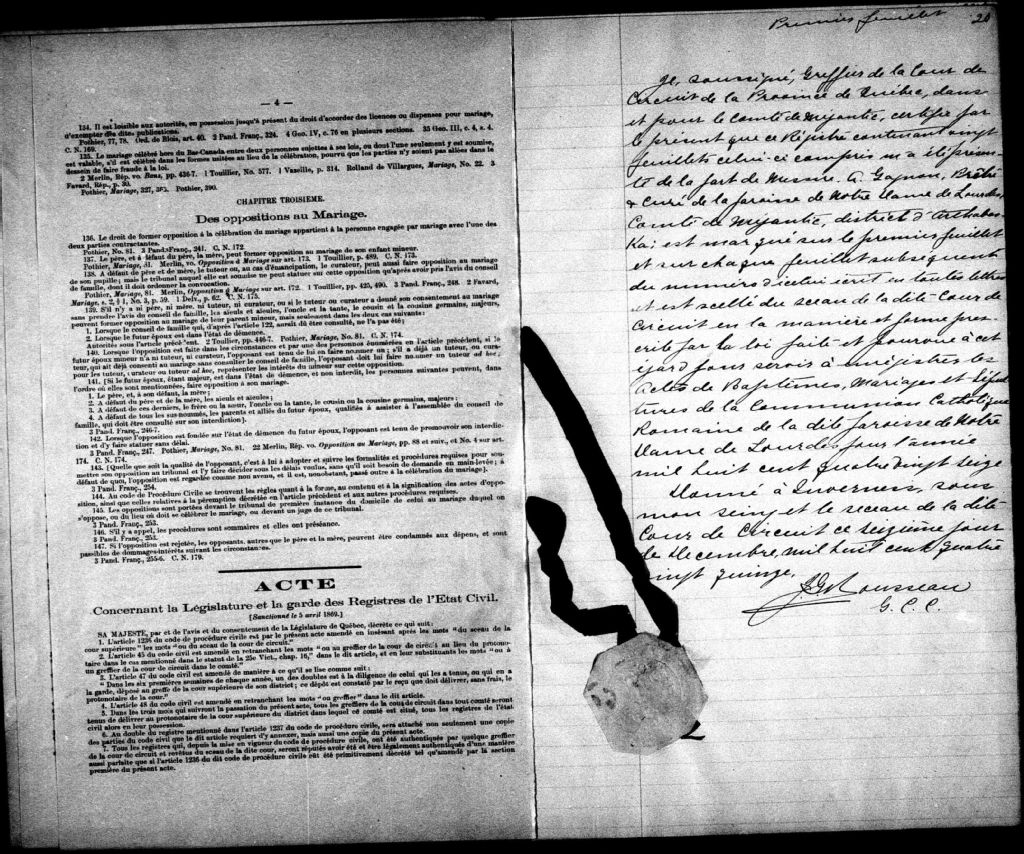 — 4 —
134. Il est loisible aux autorités, en possession jusqu'à présent du droit d'accorder des licences ou dispenses pour mariage,
d'exempter des dites publications.
Pothier, 77, 78. Ord. de Blois, art. 40. 2 Pand. Franç. 324. 4 Geo. IV, c. 76 en plusieurs sections. 35 Geo. III, c. 4, s. 4.
C. N. 169.
135. Le mariage célébré hors du Bas-Canada entre deux personnes sujettes à ses lois, ou dont l'une seulement y est soumise,
est valable, s'il est célébré dans les formes usitées au lieu de la célébration, pourvu que les parties n'y soient pas allées dans le
dessein de faire fraude à la loi.
2 Merlin, Rép. vo. Bans, pp. 436-7. 1 Touillier, No. 577. 1 Vazeille, p. 314. Rolland de Villargues, Mariage, No. 22. 3
Favard, Rép., p. 30.
Pothier, Mariage, 327, 363. Pothier, 390.
CHAPITRE TROISIEME.
Des oppositions au Mariage.
136. Le droit de former opposition à la célébration du mariage appartient à la personne engagée par mariage avec l'une des
deux parties contractantes.
Pothier, No. 81. 3 Pand. Franç., 241. C. N. 172.
137. Le père, et à défaut du père, la mère, peut former opposition au mariage de son enfant mineur.
Pothier, Mariage, 81. Merlin, vo. Opposition à Mariage sur art. 173. 1 Touillier, p. 489. C. N. 173.
138. A défaut de père et de mère, le tuteur ou, au cas d'émancipation, le curateur, peut aussi faire opposition au mariage
de son pupille; mais le tribunal auquel elle est soumise ne peut statuer sur cette opposition qu'après avoir pris l'avis du conseil
de famille, dont il doit ordonner la convocation.
Pothier, Mariage, 81. Merlin, Opposition à Mariage sur art. 172. 1 Touillier, pp. 425, 490. 3 Pand. Franç. 248. 2 Favard,
Mariage, s. 2, § 1, No. 3, p. 59. 1 Delv., p. 62. C. N. 175.
139. S'il n'y a ni père, ni mère, ni tuteur, ni curateur, ou si le tuteur ou curateur a donné son consentement au mariage
sans prendre l'avis du conseil de famille, les aïeuls et aïeules, l'oncle et la tante, le cousin et la cousine germains, majeurs,
peuvent former opposition au mariage de leur parent mineur, mais seulement dans les deux cas suivants:
1. Lorsque le conseil de famille qui, d'après l'article 122, aurait dû être consulté, ne l'a pas été;
2. Lorsque le futur époux est dans l'état de démence.
Autorités sous l'article précédent. 2 Touillier, pp. 446-7. Pothier, Mariage, No. 81. C. N. 174.
140. Lorsque l'opposition est faite dans les circonstances et par une des personnes énumérées en l'article précédent, si le
futur époux mineur n'a ni tuteur, ni curateur, l'opposant est tenu de lui en faire nommer un; s'il a déjà un tuteur, ou cura-
teur, qui ait déjà consenti au mariage sans consulter le conseil de famille, l'opposant doit lui faire nommer un tuteur ad hoc,
pour les tuteur, curateur ou tuteur ad hoc, représenter les intérêts du mineur sur cette opposition.
141. [Si le futur époux, étant majeur, est dans l'état de démence, et non interdit, les personnes suivantes peuvent, dans
l'ordre où elles sont mentionnées, faire opposition à son mariage.
1. Le père, et, à son défaut, la mère;
2. A défaut du père et de la mère, les aïeuls et aïeules;
3. A défaut de ces derniers, le frère ou la sœur, l'oncle ou la tante, le cousin ou la cousine germains, majeurs;
4. A défaut de tous les sus-nommés, les parents et alliés du futur époux, qualifiés à assister à l'assemblée du conseil de
famille, qui doit être consulté sur son interdiction].
3 Pand. Franç., 246-7.
142. Lorsque l'opposition est fondée sur l'état de démence du futur époux, l'opposant est tenu de promouvoir son interdic-
tion et d'y faire statuer sans délai.
3 Pand. Franç., 247. Pothier, Mariage, No. 81. 22 Merlin, Rép. vo. Opposition au Mariage, pp. 88 et suiv., et No. 4 sur art.
174. C. N. 174.
143. [Quelle que soit la qualité de l'opposant, c'est à lui à adopter et suivre les formalités et procédures requises pour sou-
mettre son opposition au tribunal et l'y faire décider sous les délais voulus, sans qu'il soit besoin de demande en main-levée; à
défaut de quoi, l'opposition est regardée comme non avenue, et il est, nonobstant, passé outre à la célébration du mariage].
3 Pand. Franç. 254.
144. Au code de Procédure Civile se trouvent les règles quant à la forme, au contenu et à la signification des actes d'oppo-
sition, ainsi que celles relatives à la péremption décrétée en l'article précédent et aux autres procédures requises.
145. Les oppositions sont portées devant le tribunal de première instance du domicile de celui au mariage duquel on
s'oppose, ou du lieu où doit se célébrer le mariage, ou devant un juge de ce tribunal.
3 Pand. Franç., 253.
146. S'il y a appel, les procédures sont sommaires et elles ont préséance.
3 Pand. Franç., 253.
147. Si l'opposition est rejetée, les opposants, autres que le père et la mère, peuvent être condamnés aux dépens, et sont
passibles de dommages-intérêts suivant les circonstances.
3 Pand. Franç., 255-6. C. N. 179.
ACTE
Concernant la Législature et la garde des Registres de l'Etat Civil.
[Sanctionné le 5 avril 1869.]
SA MAJESTE, par et de l'avis et du consentement de la Législature de Québec, décrète ce qui suit:
1. L'article 1236 du code de procédure civile est par le présent acte amendé en insérant après les mots "du sceau de la
cour supérieure" les mots "ou du sceau de la cour de circuit."
2. L'article 45 du code civil est amendé en retranchant les mots "ou au greffier de la cour de circuit au lieu du protono-
taire dans le cas mentionné dans le statut de la 25e Vict., chap. 16," dans le dit article, et en leur substituant les mots "ou à
un greffier de la cour de circuit dans le comté."
3. L'article 47 du code civil est amendé de manière à ce qu'il se lise comme suit:
"Dans les six premières semaines de chaque année, un des doubles est à la diligence de celui qui les a tenus, ou qui en a
la garde, déposé au greffe de la cour supérieure de son district; ce dépôt est constaté par le reçu que doit délivrer, sans frais, le
protonotaire de la cour."
4. L'article 48 du code civil est amendé en retranchant les mots "ou greffier" dans le dit article.
5. Dans les trois mois qui suivront la passation du présent acte, tous les greffiers de la cour de circuit dans tout comté seront
tenus de délivrer au protonotaire de la cour supérieure du district dans lequel ce comté est situé, tous les registres de l'état
civil alors en leur possession.
6. Au double du registre mentionné dans l'article 1237 du code de procédure civile, sera attaché non seulement une copie
des parties du code civil que le dit article requiert d'y annexer, mais aussi une copie du présent acte.
7. Tous les registres qui, depuis la mise en vigueur du code de procédure civile, ont été authentiqués par quelque greffier
de la cour de circuit et revêtus du sceau de la dite cour, seront réputés avoir été et être légalement authentiqués d'une manière
aussi parfaite que si l'article 1236 du dit code de procédure civile eût été primitivement décrété tel qu'amendé par la section
première du présent acte.
Premier feuillet 20
Je, soussigné, Greffier de la Cour de
Circuit de la Province de Québec, dans
et pour le Comté de Mégantic, certifie par
le présent que ce Régistre contenant vingt
feuillets celui-ci compris m'a été présen-
té de la part de Messire A. Gagnon, Prêtre
& Curé de la paroisse de Notre Dame de Lourdes,
Comté de Mégantic, district d'Arthabas-
ka; est marqué sur le premier feuillet
et sur chaque feuillet subséquent
du numéro d'icelui écrit en toutes lettres
et est scellé du sceau de la dite Cour de
Circuit en la manière et forme pres-
crite par la loi faite et pourvue à cet
égard pour servir à enrégistrer les
Actes de Baptêmes, Mariages et Sépul-
tures de la Communion Catholique
Romaine de la dite paroisse de Notre
Dame de Lourdes pour l'année
mil huit cent quatre vingt seize
Donné à Inverness, sous
mon seing et le sceau de la dite
Cour de Circuit ce seizième jour
de Décembre, mil huit cent quatre
vingt quinze.
Rousseau
G. C. C.